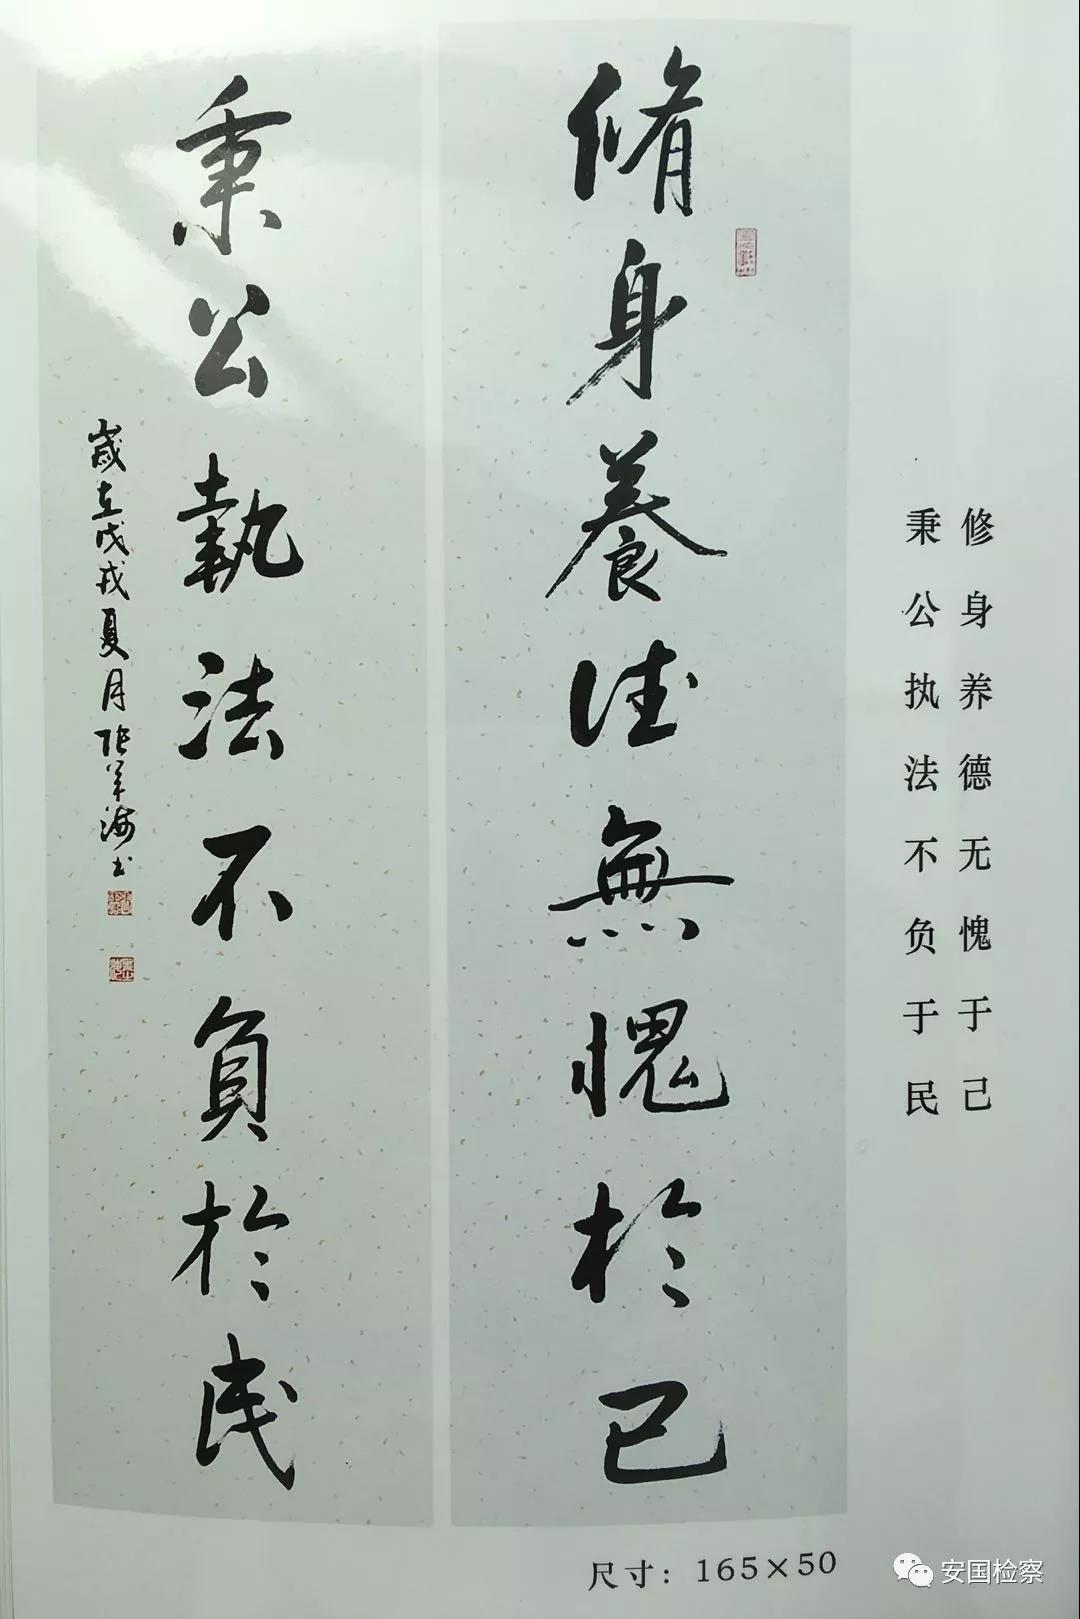 修身养德无愧于己
秉公执法不负于民
脩身養德無愧於己
秉公執法不負於民
歲在戊戌夏月
尺寸：165×50
安国检察